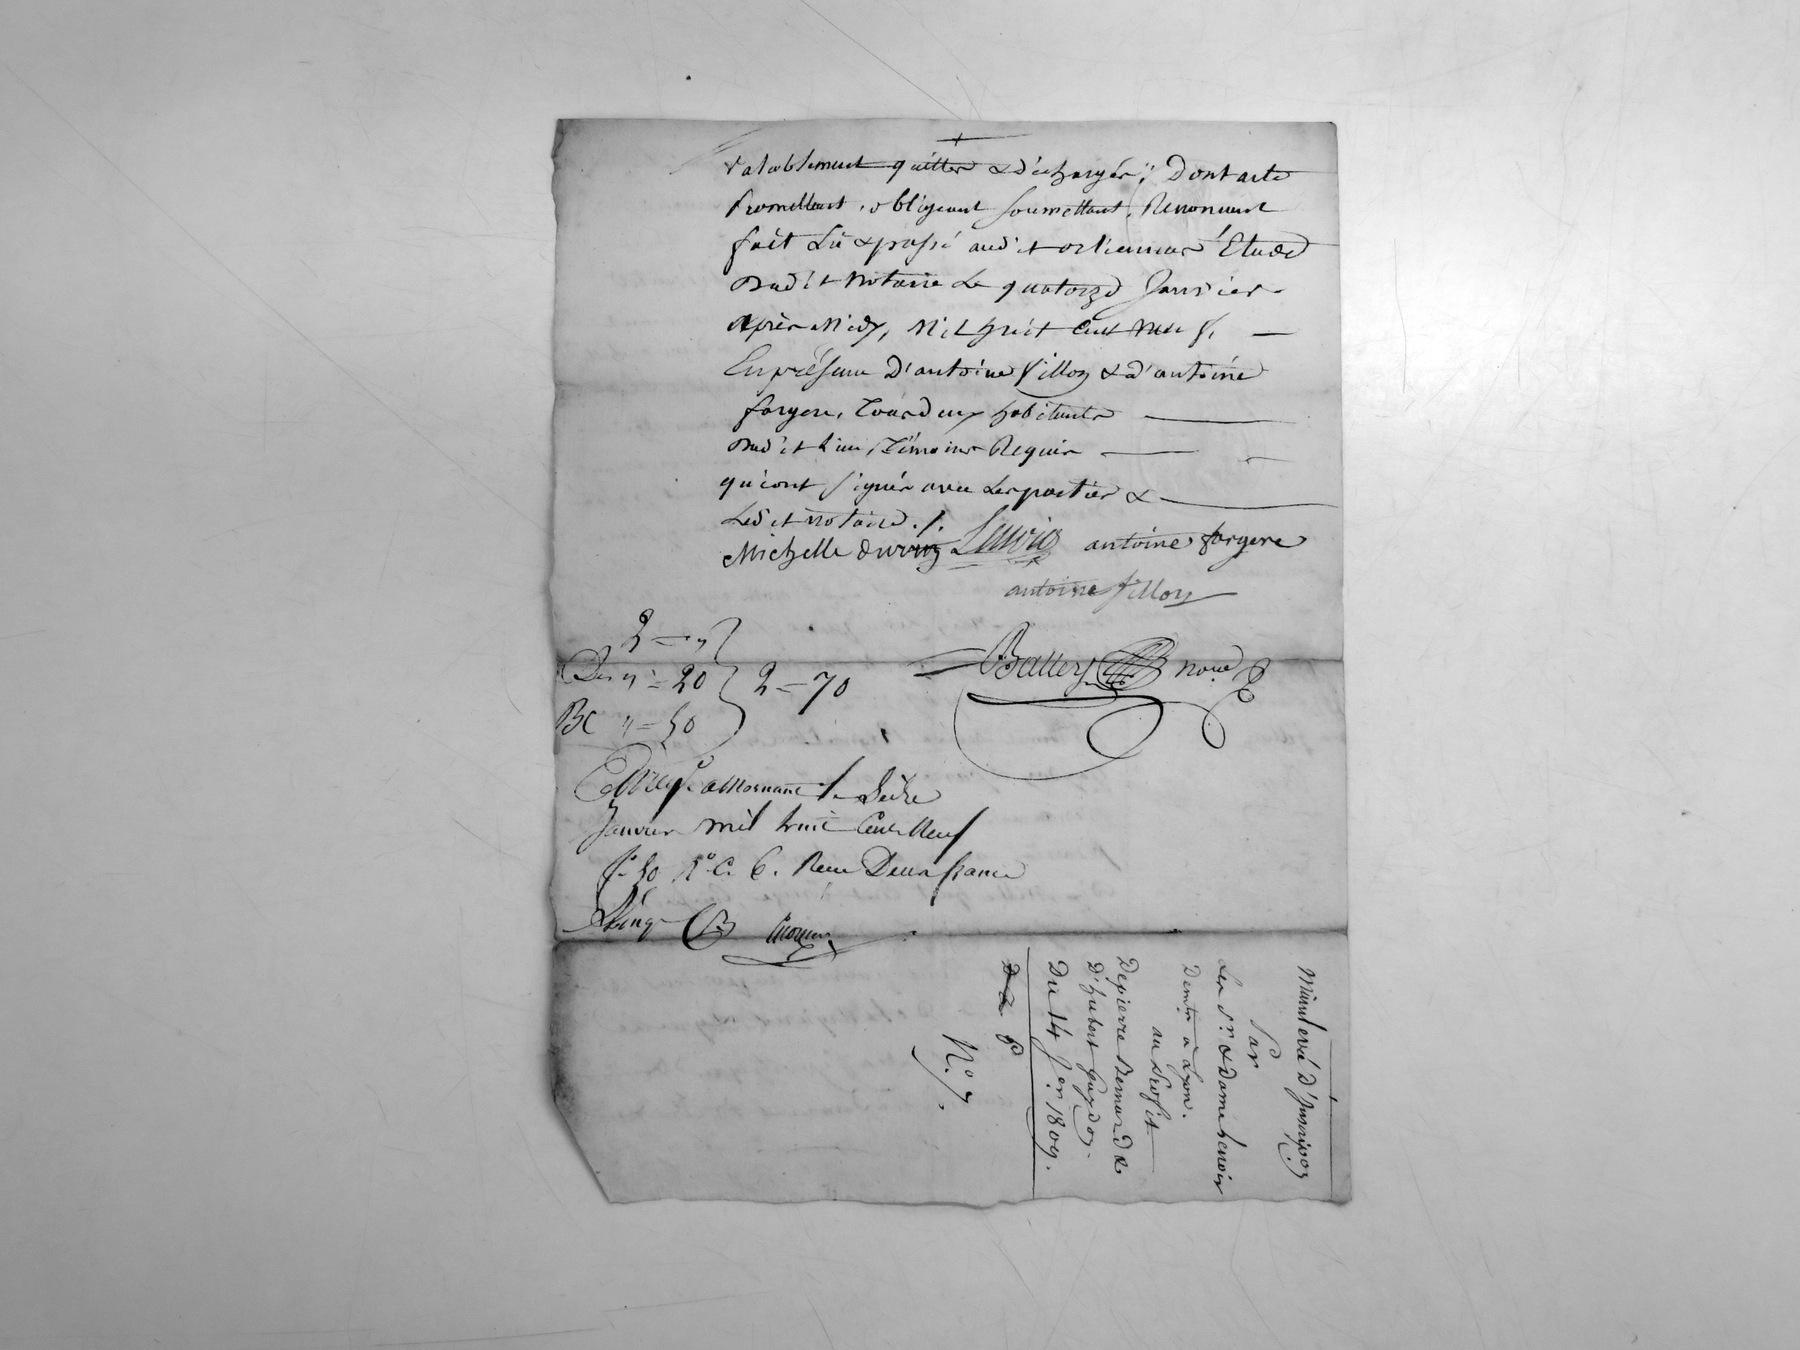 valablement quitter & déchargés; Dont acte
Promettant, obligeant soumettant, Renonçant
fait Lû & passé audit orliennas Etude
Dudit Notaire Le quatorze Janvier
après Midy, Mil huit Cent Neuf,
En présence D'antoine fillon & d'antoine
fargere, Tous deux habitants
Dudit Lieu, Témoins Requis
qui ont signés avec Les parties &
Ledit notaire ./.
Michelle Lavois antoine fargere
antoine fillon
2 = "
" = 20 } 2 = 70
" = 50
Balley Nore
a Mornant le Seize
Janvier mil huit Cent Neuf
fo 50 Ro C. 6. Recu Deux francs
Minute de
Par
Les Sr. & Dame Lenoir
Demts. a Lyon.
au Profit
De pierre Bernard &
D'hubert Guydon.
Du 14 Jer. 1809.
No. 7.